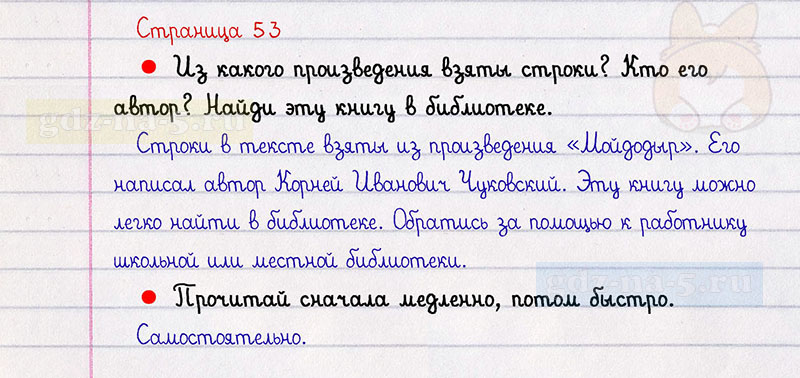 Страница 53
● Из какого произведения взяты строки? Кто его
автор? Найди эту книгу в библиотеке.
gdz-na-5.ru
Строки в тексте взяты из произведения «Мойдодыр». Его
написал автор Корней Иванович Чуковский. Эту книгу можно
легко найти в библиотеке. Обратись за помощью к работнику
школьной или местной библиотеки.
gdz-na-5.ru
● Прочитай сначала медленно, потом быстро.
Самостоятельно.